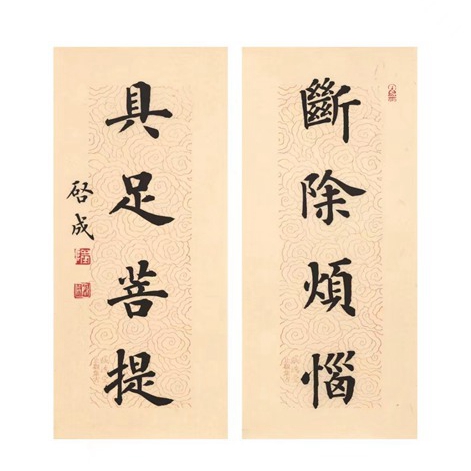 斷除煩惱
具足菩提
啓成